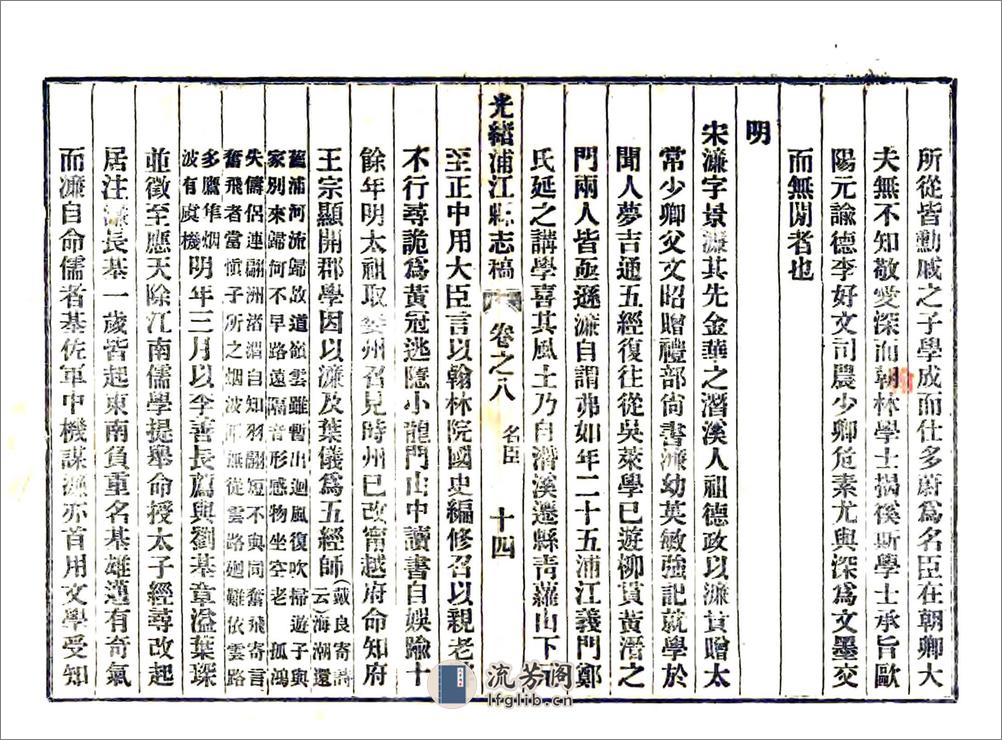 所從皆勳戚之子學成而仕多蔚爲名臣在朝卿大
夫無不知敬愛深而翰林學士揭傒斯學士承旨歐
陽元諭德李好文司農少卿危素尤與深爲文墨交
而無間者也
明
宋濂字景濂其先金華之潛溪人祖德政以濂貴贈太
常少卿父文昭贈禮部尙書濂幼英敏強記就學於
聞人夢吉通五經復往從吳萊學已遊柳貫黃溍之
門兩人皆亟遜濂自謂弗如年二十五浦江義門鄭
氏延之講學喜其風土乃自潛溪遷縣靑蘿山下
光緖浦江縣志稿 卷之八 名臣 十四
至正中用大臣言以翰林院國史編修召以親老
不行尋詭爲黃冠逃隱小龍門山中讀書自娛踰十
餘年明太祖取婺州召見時州已改甯越府命知府
王宗顯開郡學因以濂及葉儀爲五經師(戴良寄詩云)海潮還
舊浦河流歸故道嶺雲雖暫出迴風復吹掃遊子與
家別來歸何不早路遠隔音形感物坐空老 孤鴻
失儔侶連翩洲渚濶自知羽翮短不與同奮飛寄言
奮飛者當愼子所之烟波亦無從雲路迴難依雲路
多鷹隼烟
波有虞機 明年三月以李善長薦與劉基章溢葉琛
並徵至應天除江南儒學提舉命授太子經尋改起
居注濂長基一歲皆起東南負重名基雄邁有奇氣
而濂自命儒者基佐軍中機謀濂亦首用文學受知
流芳阁
lfglib.cn